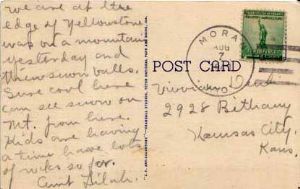 we are at the
edge of Yellowstone
was on a mountain
yesterday and
threw snow balls.
Sure cool here
can see snow on
Mt. from here.
Kids are having
a time have lots
of rocks so far.
Aunt
MORAN
AUG
7
POST CARD
2928 Bethany
Kansas City,
Kans.